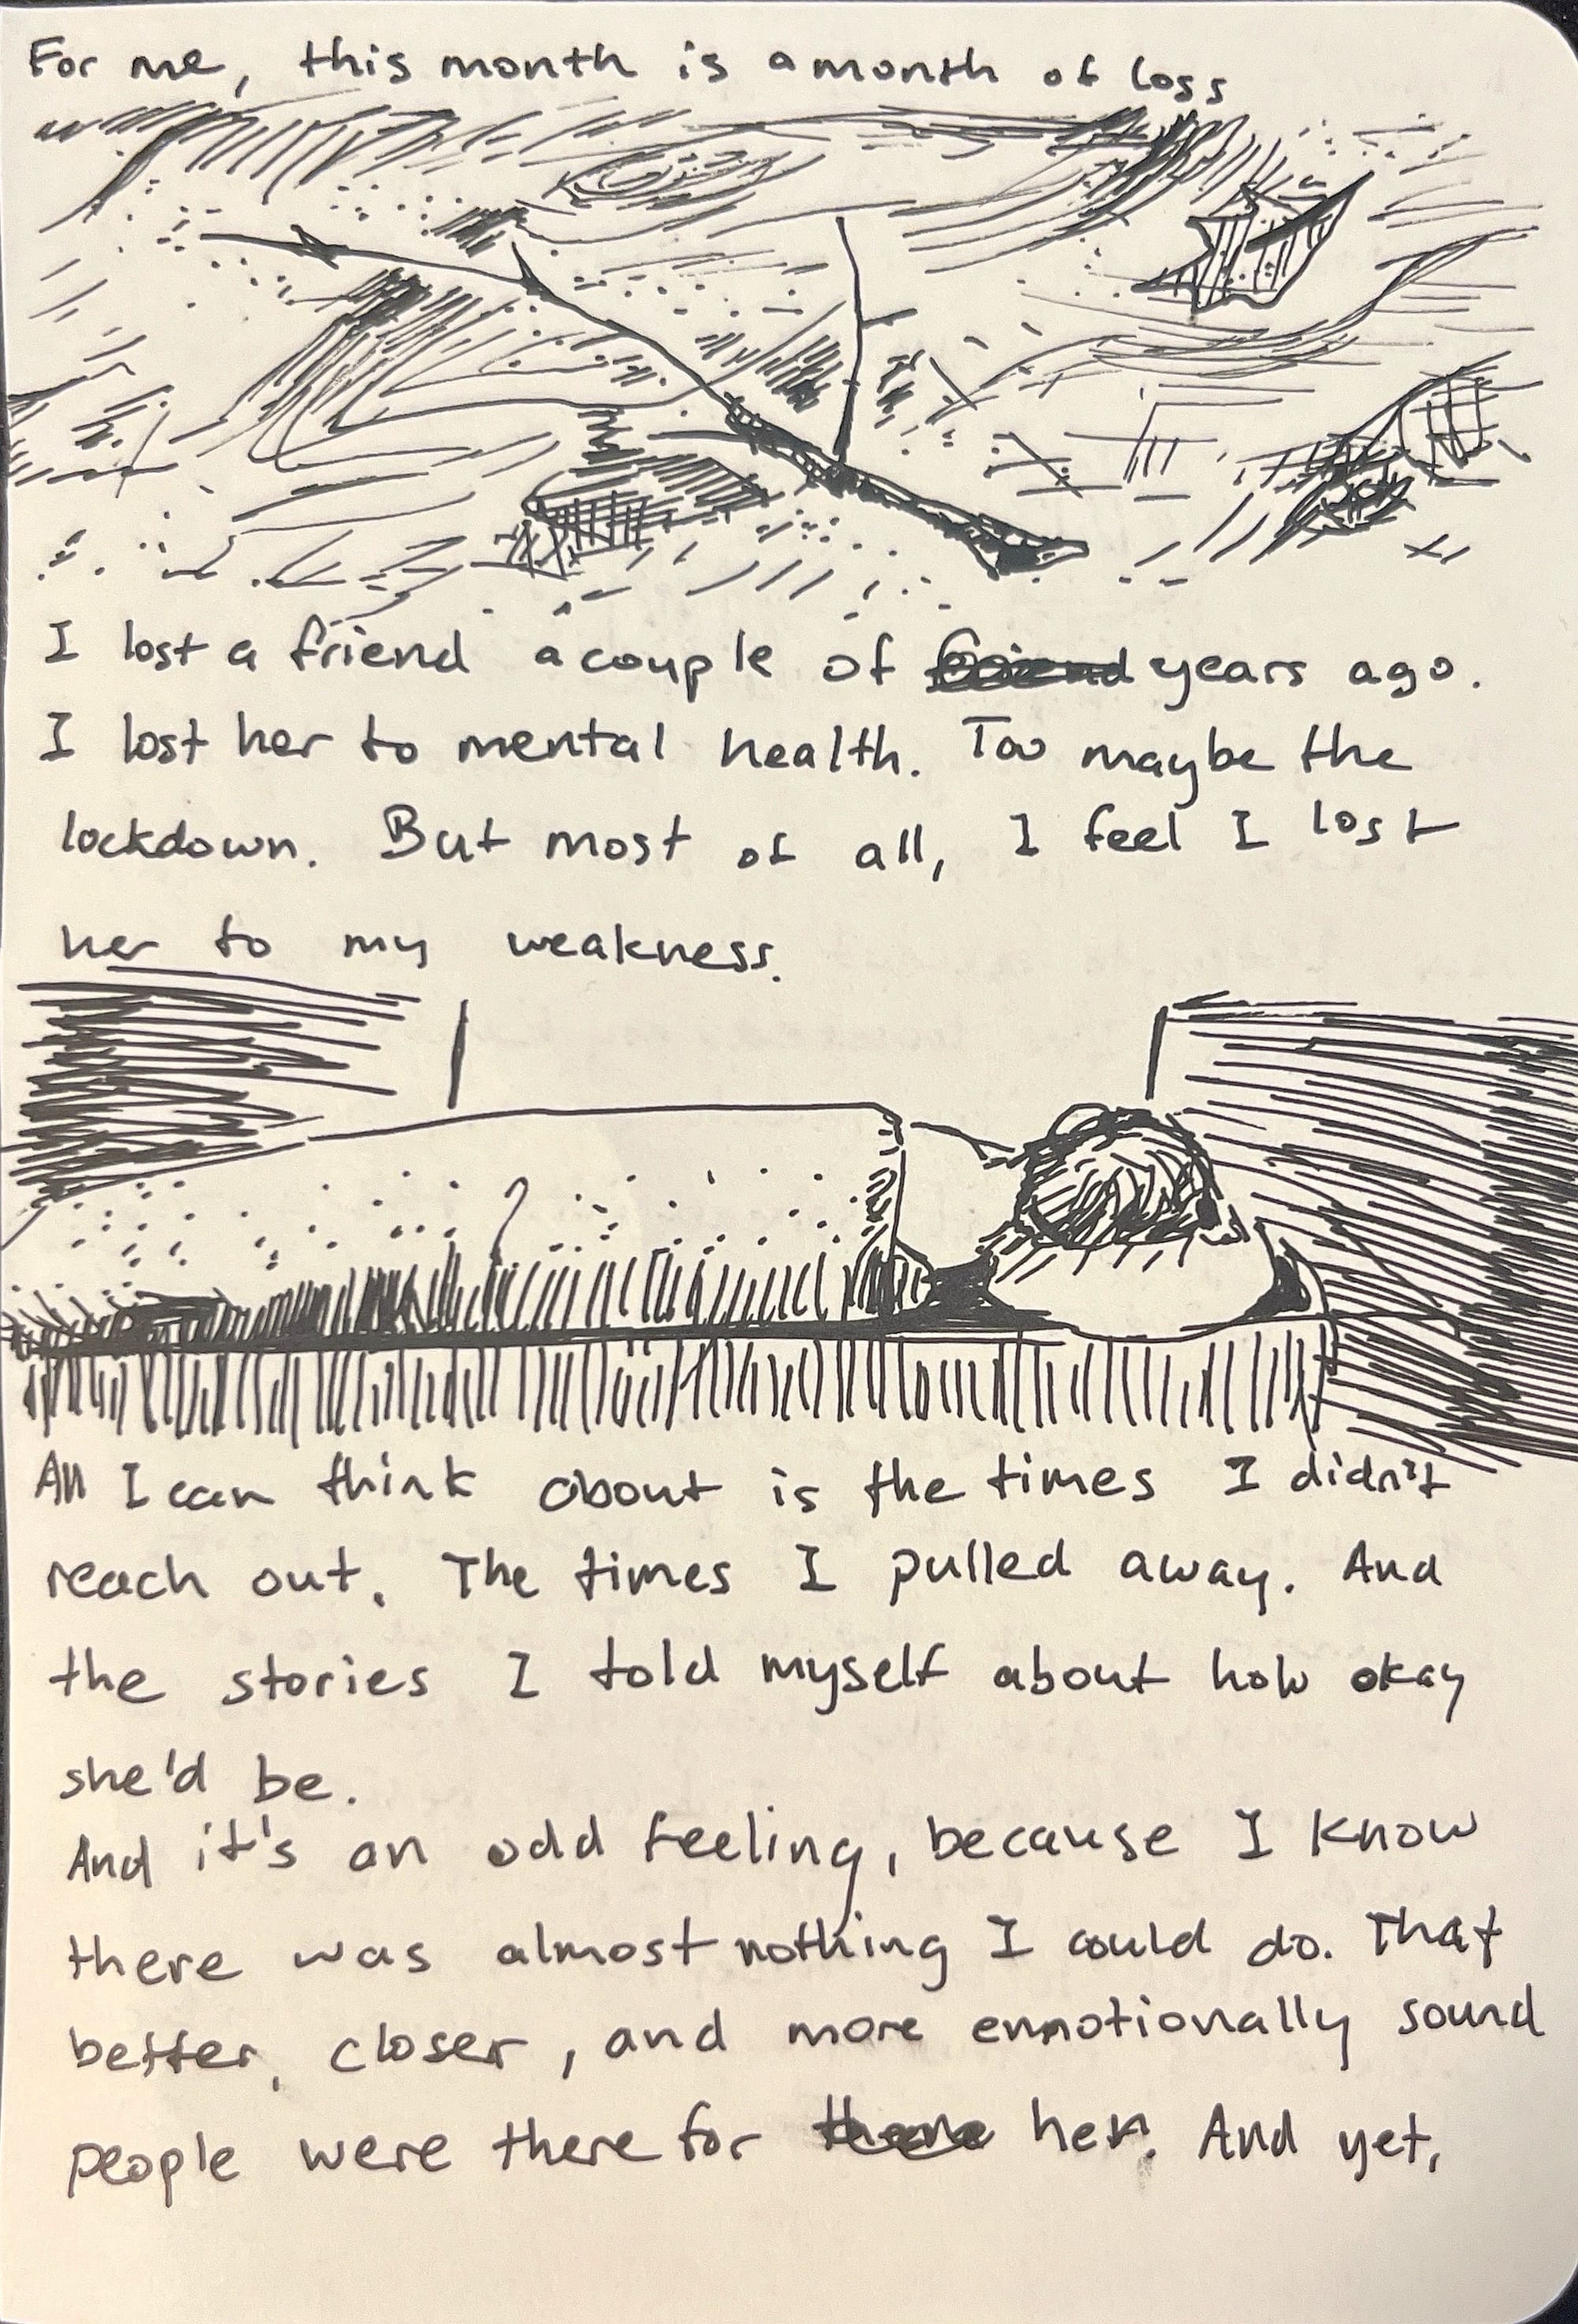 For me, this month is a month of loss
I lost a friend a couple of years ago.
I lost her to mental health. Too maybe the
lockdown. But most of all, I feel I lost
her to my weakness.
All I can think about is the times I didn't
reach out. The times I pulled away. And
the stories I told myself about how okay
she'd be.
And it's an odd feeling, because I know
there was almost nothing I could do. That
better, closer, and more enmotionally sound
people were there for her. And yet,